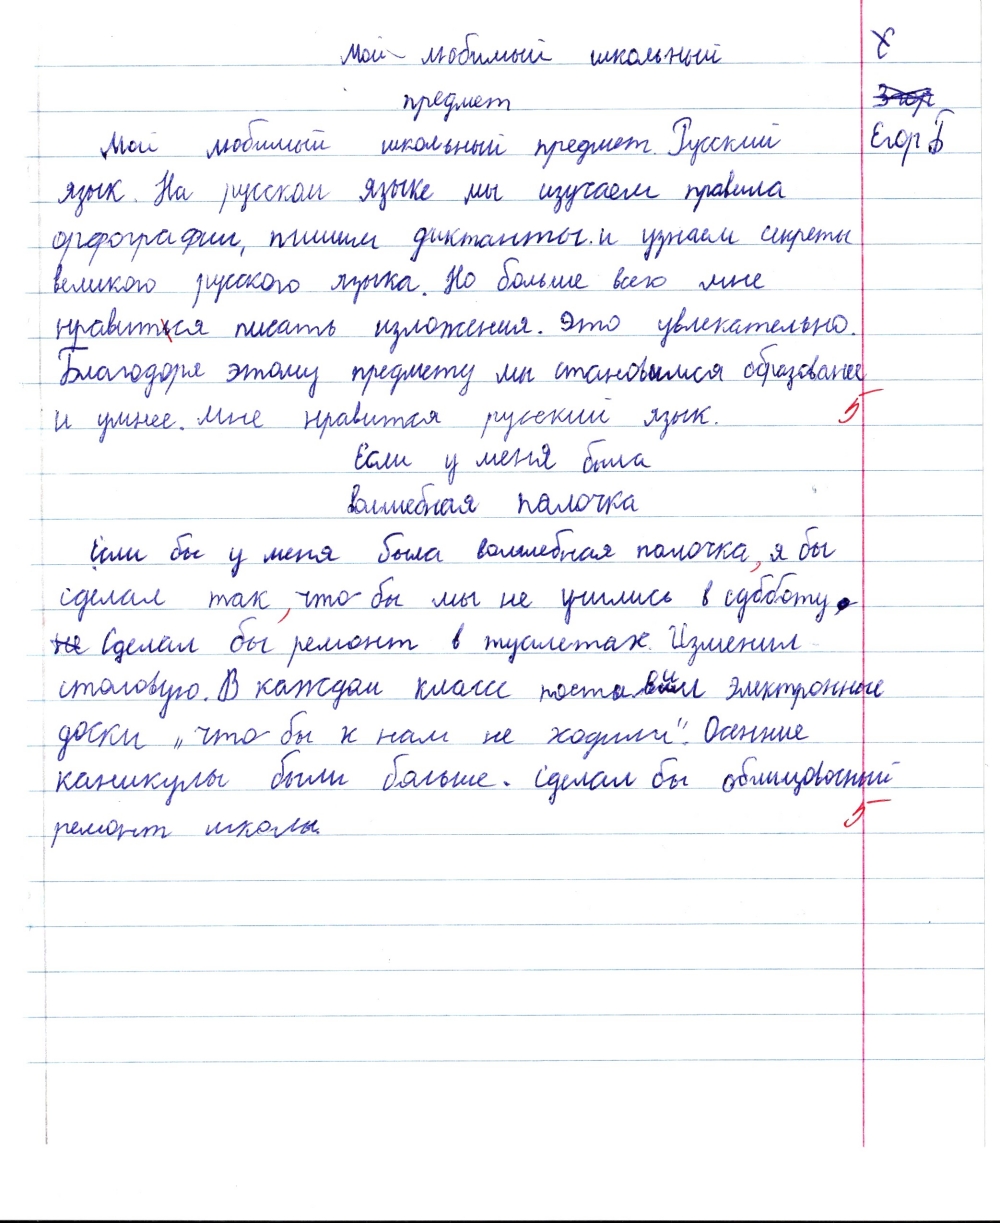 Мой любимый школьный
предмет
Егор Б
Мой любимый школьный предмет. Русский
язык. На русском языке мы изучаем правила
орфографии, пишим диктанты. и узнаем секреты
великого русского языка. Но больше всего мне
нравиться писать изложения. Это увлекательно.
Благодоря этому предмету мы становимся образованее
и умнее. Мне нравится русский язык.
5
Если у меня была
волшебная палочка
Если бы у меня была волшебная палочка, я бы
сделал так, что бы мы не учились в субботу.
не Сделал бы ремонт в туалетах. Изменил
столовую. В каждом классе поставил электронные
доски „что бы к нам не ходили". Осенние
каникулы были больше. Сделал бы облицовочный
5
ремонт школы.